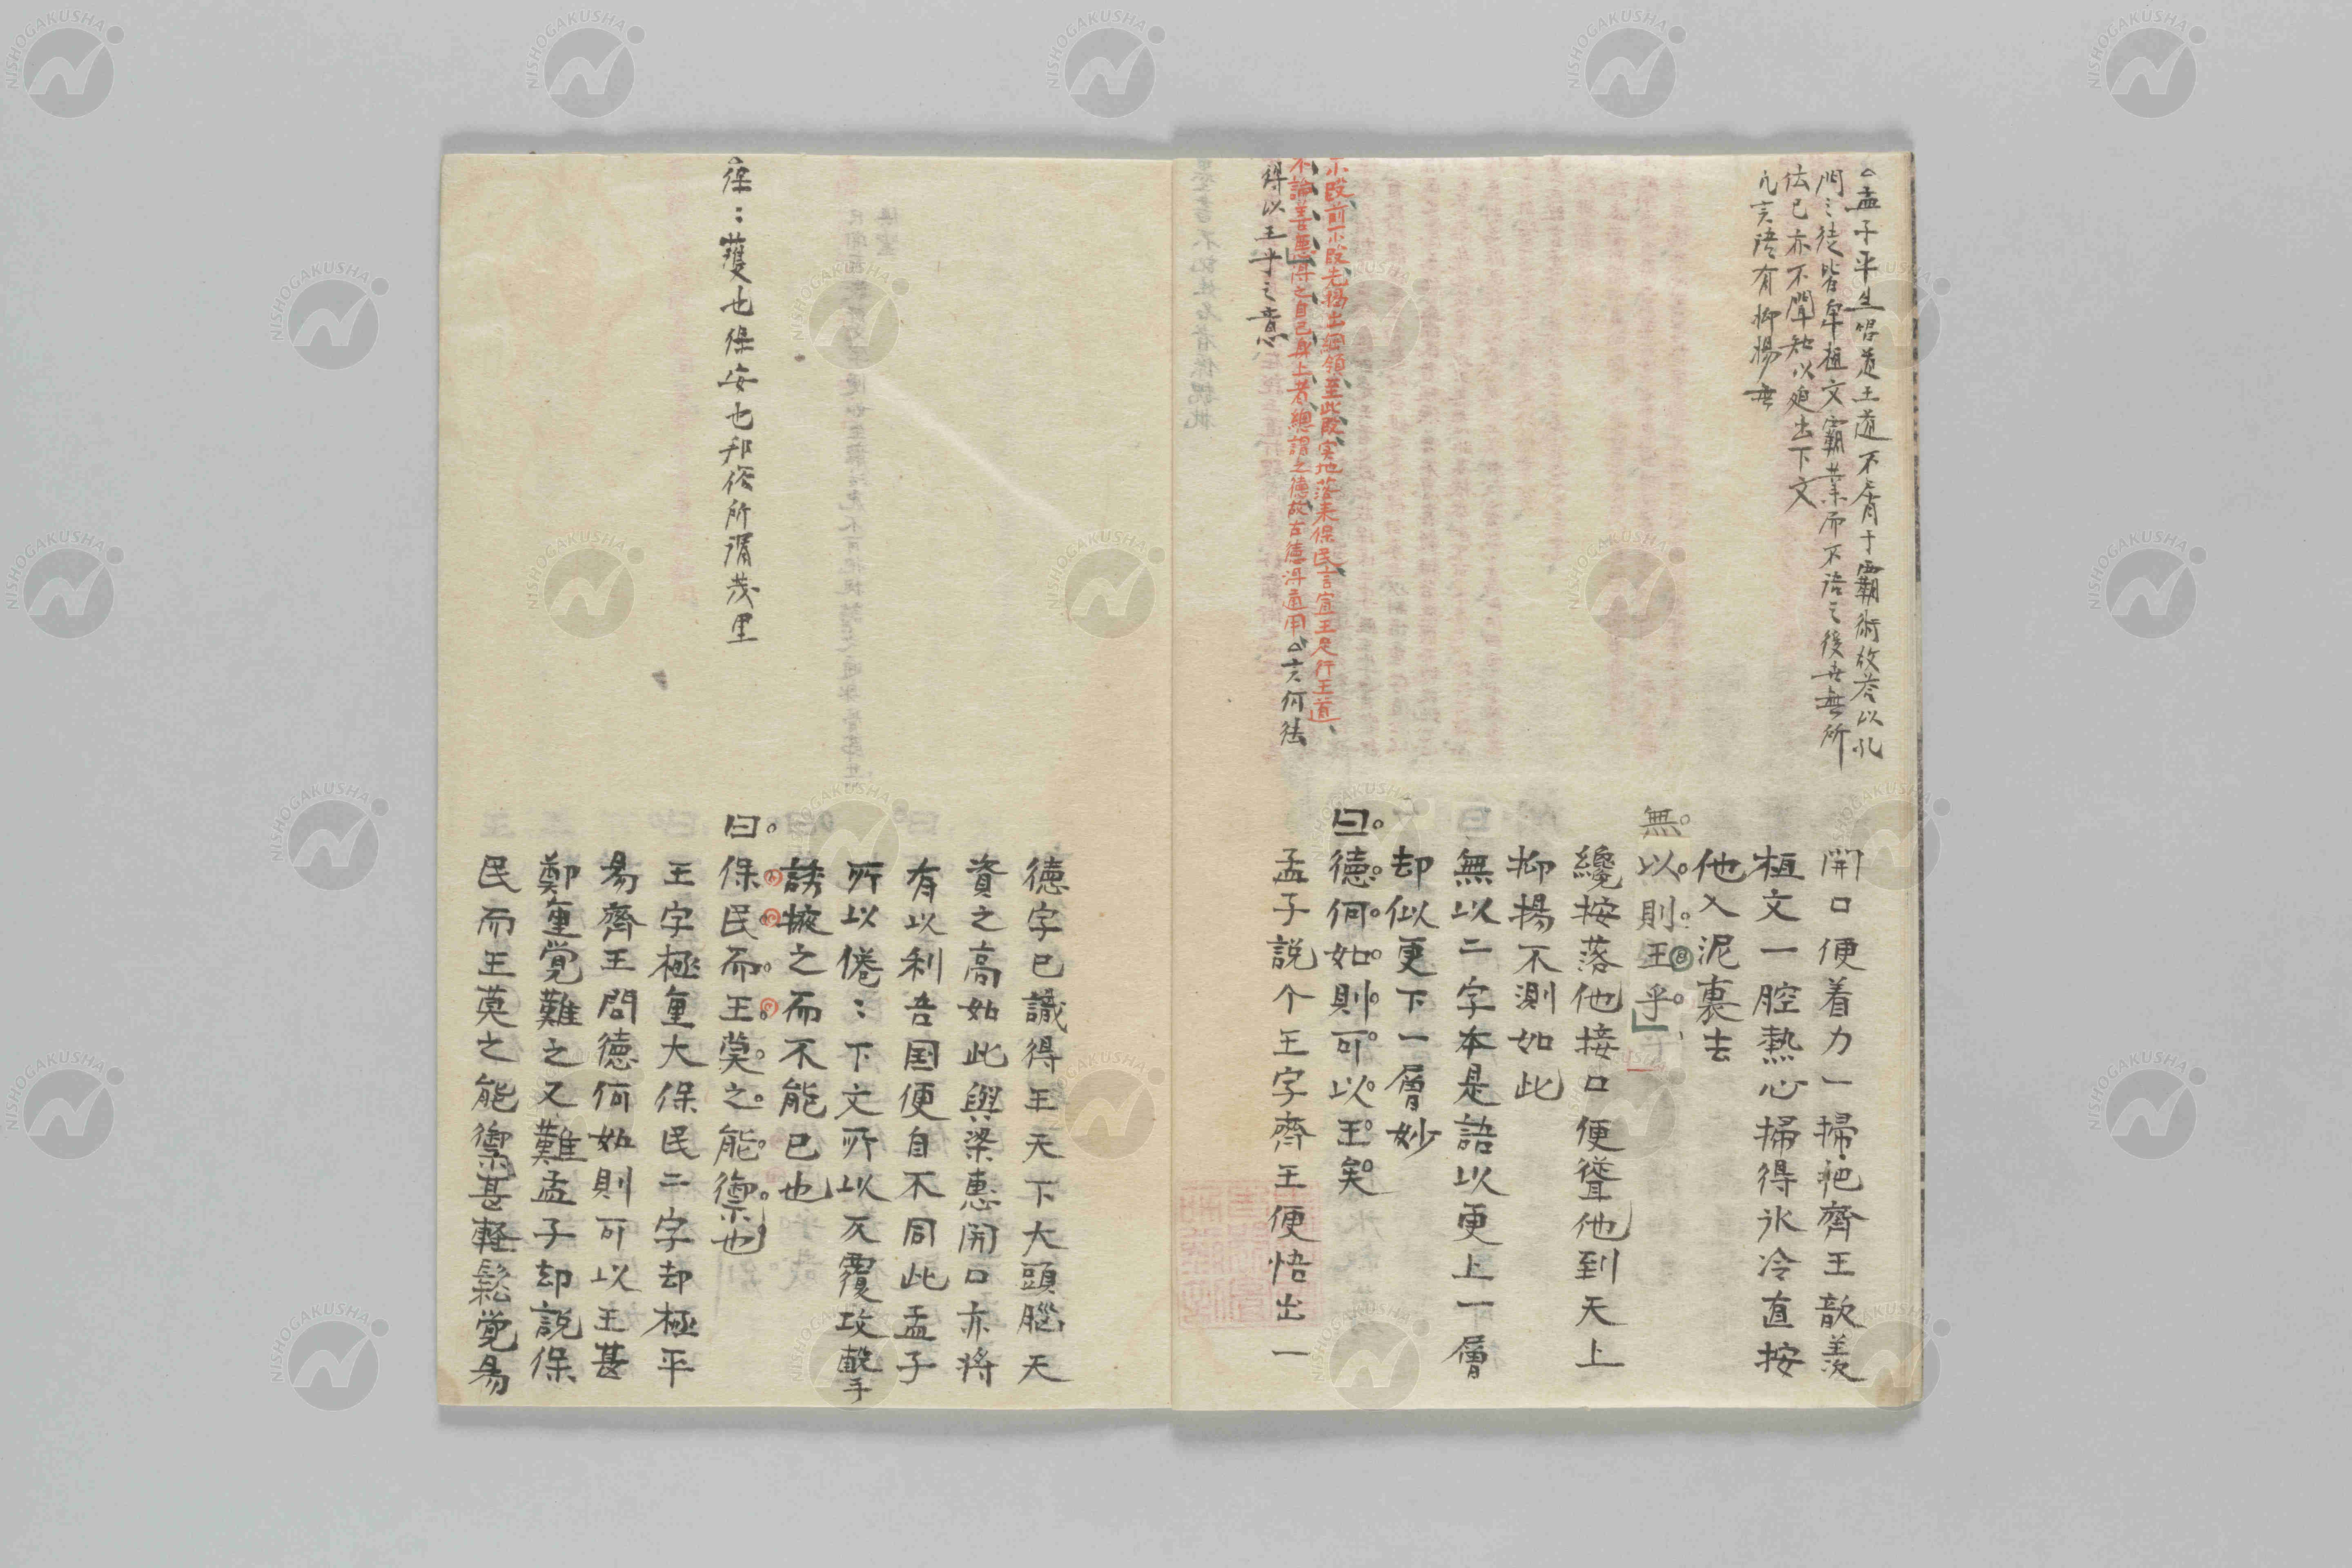 孟子平生唱道王道不屑于霸術故答以孔
門之徒皆卑桓文霸業而不語之後世無所
伝已亦不聞知以廹出下文
凡言語有抑揚無
小段前一小段先揭出綱領至此段実地落来保民言宣王足行王道
不論善悪得之自己身上者総謂之徳故古徳得通用△言何徳
得以王乎之意
開口便着力一掃把齊王歆羨
桓文一腔熱心掃得氷冷直按
他入泥裏去
無以則王乎
纔按落他接口便聳他到天上
抑揚不測如此
無以二字本是語以更上一層
却似更下一層妙
曰徳何如則可以王矣
孟子説个王字齊王便悟出一
徳字已識得王天下大頭腦天
資之高如此與梁惠開口亦將
有以利吾国便自不同此孟子
所以倦：下文所以反覆攻擊
誘掖之而不能已也
曰保民而王莫之能禦也
王字極重大保民二字却極平
易齊王問徳何如則可以王甚
鄭重覚難之又難孟子却説保
民而王莫之能禦甚軽鬆覚易
保：護也保安也邦俗所謂茂里
NISHOGAKUSHA